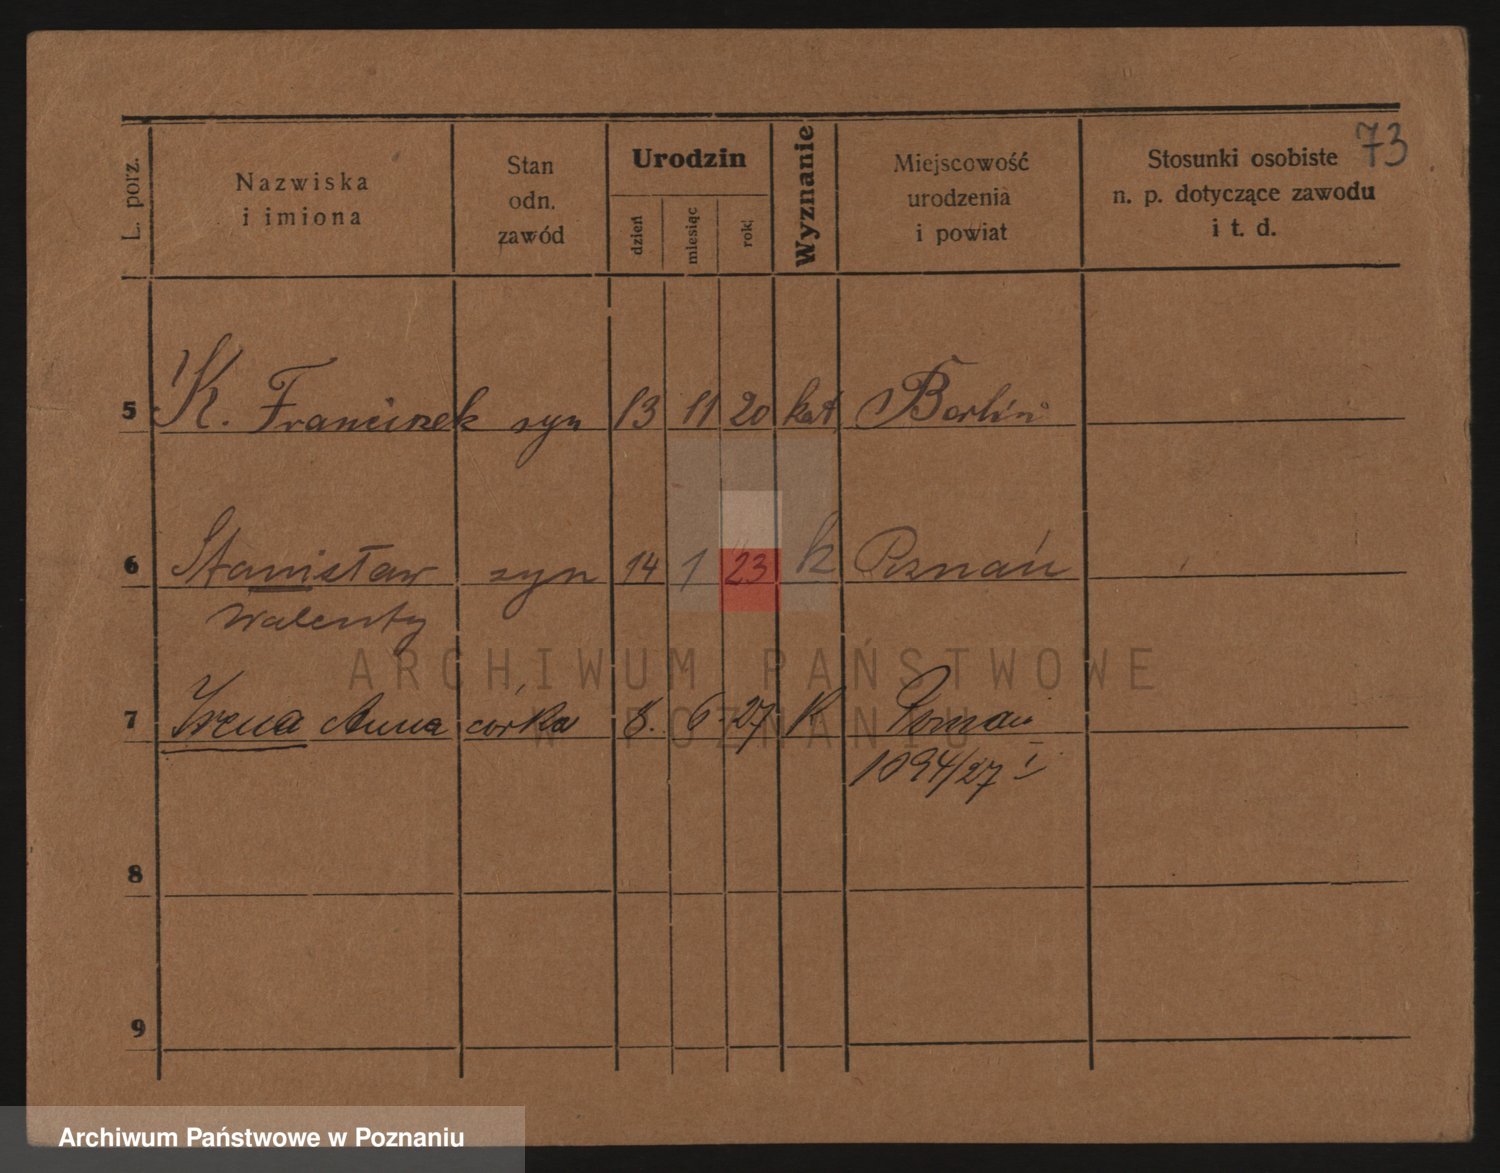 73
L. porz.
Nazwiska
i imiona
Stan
odn.
zawód
Urodzin
dzień
miesiąc
rok
Wyznanie
Miejscowość
urodzenia
i powiat
Stosunki osobiste
n. p. dotyczące zawodu
i t. d.
5 K. Franciszek syn 13 11 20 kat Berlin
6 Stanisław syn 14 1 23 k Poznań
Walenty
ARCHIWUM PAŃSTWOWE
7 Irena Anna córka 8. 6. 27 K Poznań
W POZNANIU
1094/27 I
8
9
Archiwum Państwowe w Poznaniu